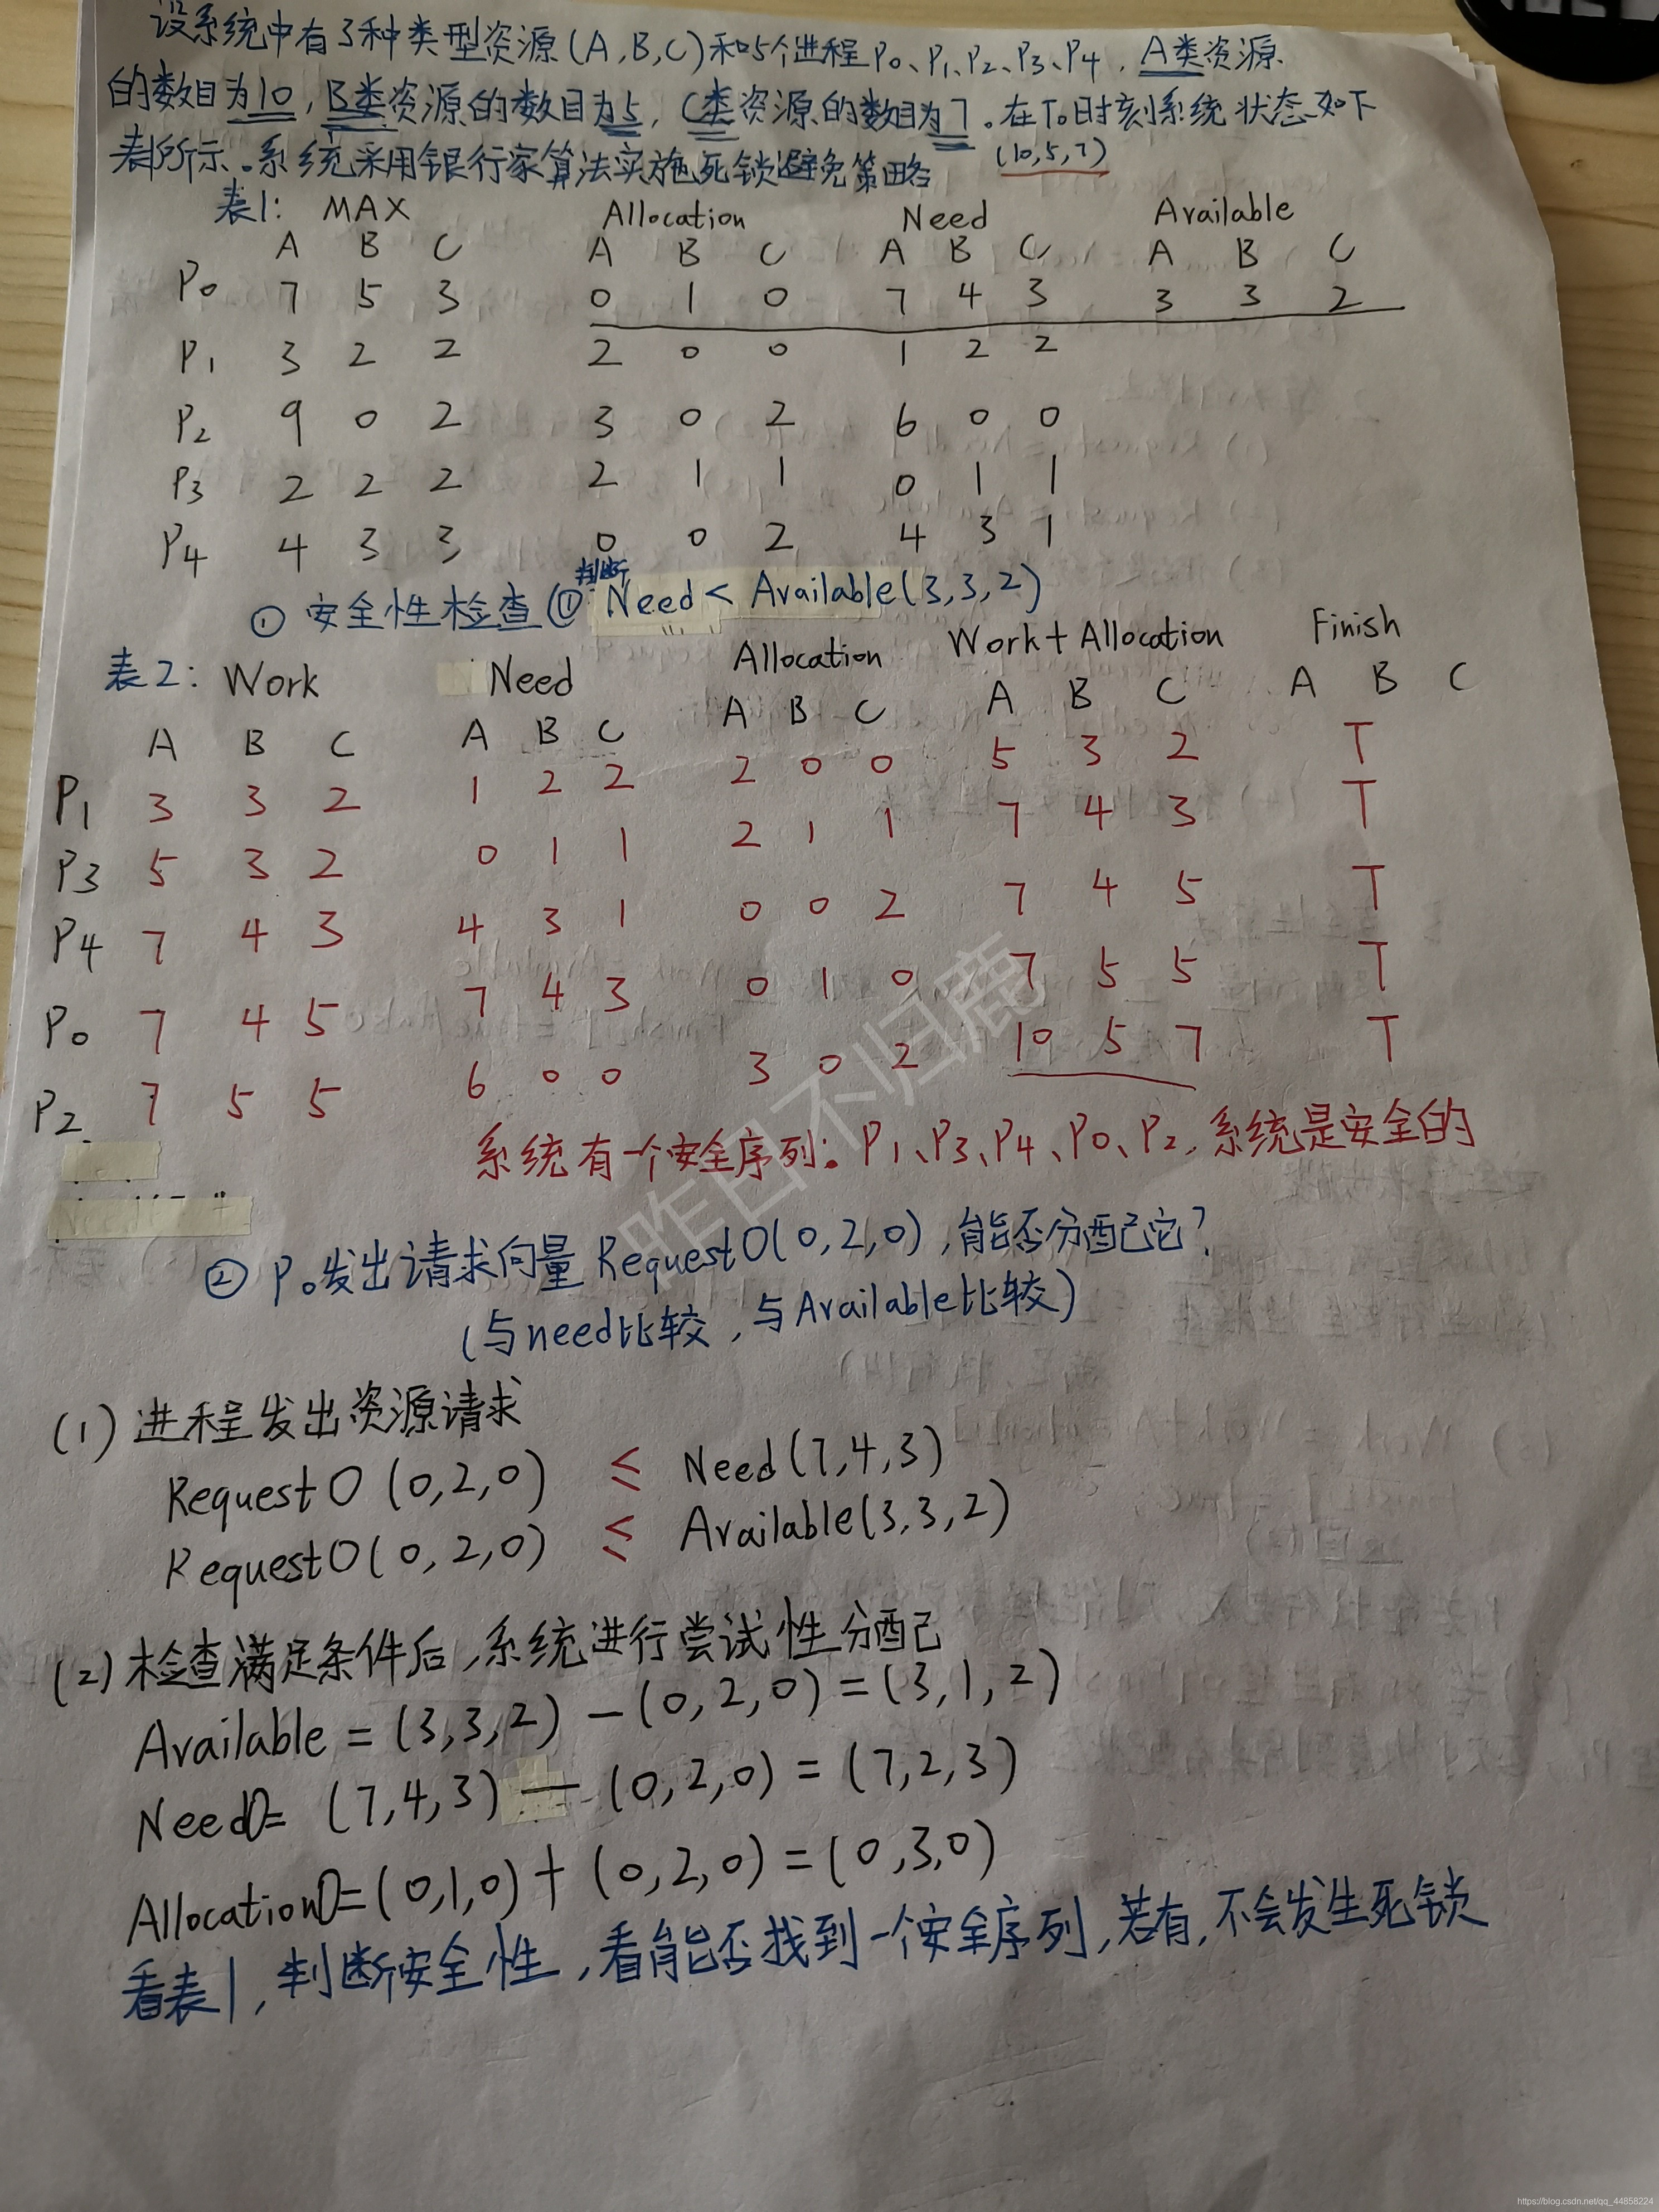 设系统中有3种类型资源(A,B,C)和5个进程P0、P1、P2、P3、P4，A类资源
的数目为10，B类资源的数目为5，C类资源的数目为7。在T0时刻系统状态如下
表所示。系统采用银行家算法实施死锁避免策略 (10,5,7)
表1: MAX Allocation Need Available
A B C A B C A B C A B C
P0 7 5 3 0 1 0 7 4 3 3 3 2
P1 3 2 2 2 0 0 1 2 2
P2 9 0 2 3 0 2 6 0 0
P3 2 2 2 2 1 1 0 1 1
P4 4 3 3 0 0 2 4 3 1
① 安全性检查(①判断Need < Available(3,3,2)
表2: Work Need Allocation Work+Allocation Finish
A B C A B C A B C A B C A B C
P1 3 3 2 1 2 2 2 0 0 5 3 2 T
P3 5 3 2 0 1 1 2 1 1 7 4 3 T
P4 7 4 3 4 3 1 0 0 2 7 4 5 T
P0 7 4 5 7 4 3 0 1 0 7 5 5 T
P2 7 5 5 6 0 0 3 0 2 10 5 7 T
系统有一个安全序列: P1、P3、P4、P0、P2，系统是安全的
昨日不归鹿
② P0发出请求向量 Request0(0,2,0)，能否分配它?
(与need比较，与Available比较)
(1) 进程发出资源请求
Request0 (0,2,0) ≤ Need(7,4,3)
Request0(0,2,0) ≤ Available(3,3,2)
(2) 检查满足条件后，系统进行尝试性分配
Available = (3,3,2) - (0,2,0) = (3,1,2)
Need0= (7,4,3) — (0,2,0) = (7,2,3)
Allocation0=(0,1,0)+(0,2,0)=(0,3,0)
看表1，判断安全性，看能否找到一个安全序列，若有，不会发生死锁
https://blog.csdn.net/qq_44858224